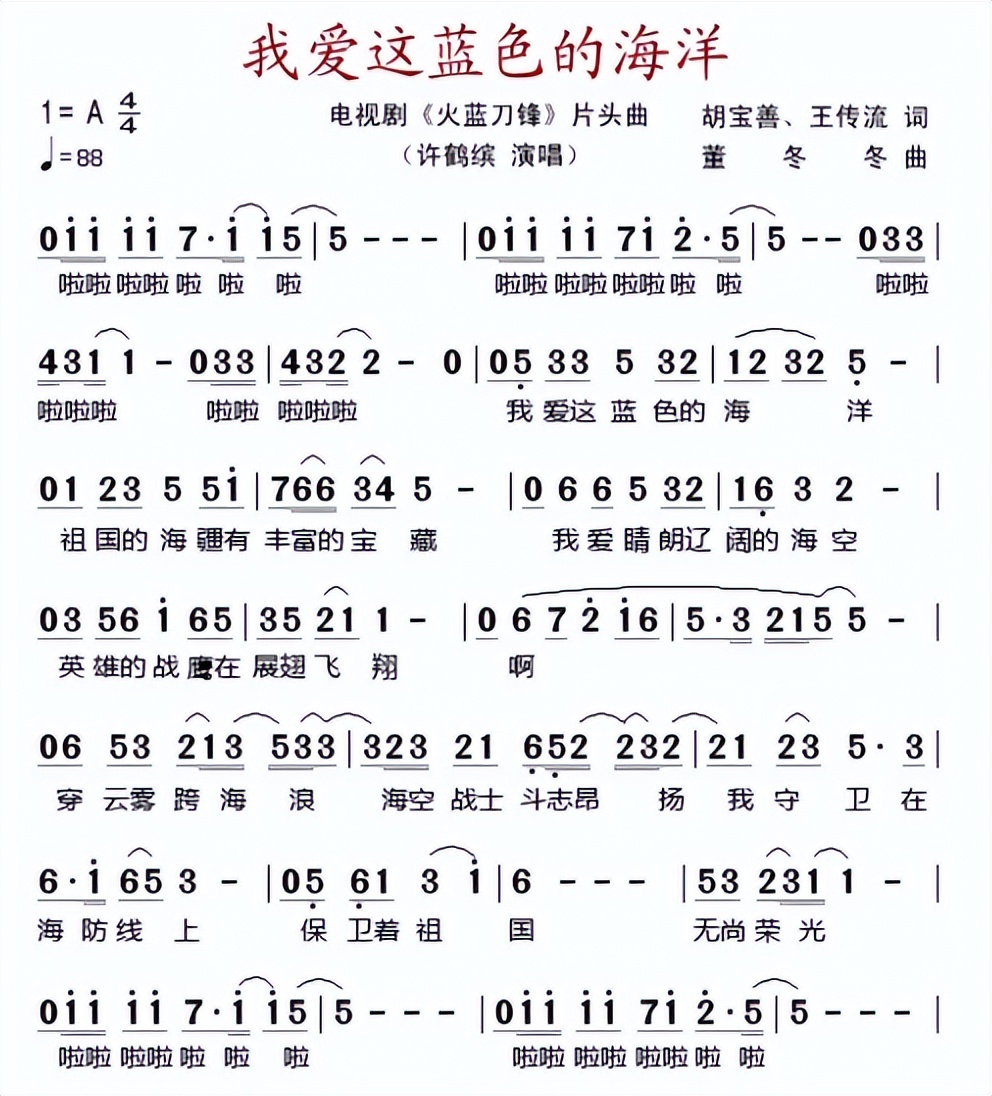 我爱这蓝色的海洋
1= A 4/4 电视剧《火蓝刀锋》片头曲 胡宝善、王传流 词
♩=88 （许鹤缤 演唱） 董 冬 冬 曲
0i̇i̇ i̇i̇ 7·i̇ i̇5|5 - - - |0i̇i̇ i̇i̇ 7i̇ 2̇·5|5 - - 033|
啦啦 啦啦 啦 啦 啦 啦啦 啦啦 啦啦 啦 啦 啦啦
431 1 - 033|432 2 - 0|05̣ 33 5 32|12 32 5̣ - |
啦啦啦 啦啦 啦啦啦 我 爱这 蓝 色的 海 洋
01 23 5 5i̇|766 34 5 - |0 6 6 5 32|16̣ 3 2 - |
祖 国的 海 疆有 丰富的 宝 藏 我 爱 晴 朗辽 阔的 海 空
03 56 i̇ 65|35 21 1 - |0 6 7 2̇ i̇6|5·3 2155 - |
英 雄的 战 鹰在 展翅 飞 翔 啊
06 53 213 533|323 21 6̣5̣2 232|21 23 5· 3|
穿 云雾 跨 海 浪 海空 战士 斗志昂 扬 我 守 卫 在
6·i̇ 65 3 - |05̣ 6̣1 3 i̇|6 - - - |53 231 1 - |
海 防 线 上 保 卫着 祖 国 无尚 荣 光
0i̇i̇ i̇i̇ 7·i̇ i̇5|5 - - - |0i̇i̇ i̇i̇ 7i̇ 2̇·5|5 - - - |
啦啦 啦啦 啦 啦 啦 啦啦 啦啦 啦啦 啦 啦